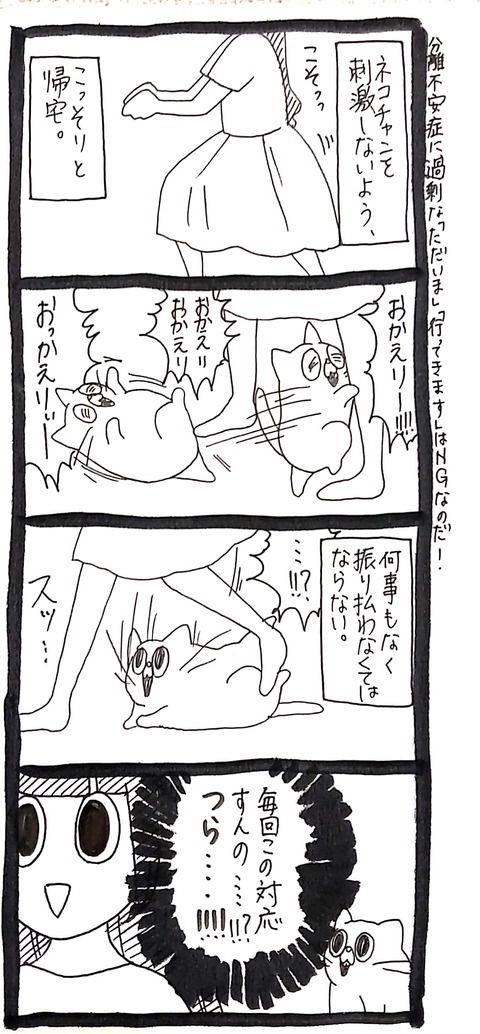 分離不安症に過剰な「ただいま」「行ってきます」はNGなのだ！
ネコチャンを
刺激しないよう、
こそっっ
こっそりと
帰宅。
おかえりー!!!!
おかえり
おかえり
おっかえりぃー
何事もなく
振り払わなくては
ならない。
…!!?
スッ…
毎回この対応
すんの……!!?
つら……!!!!